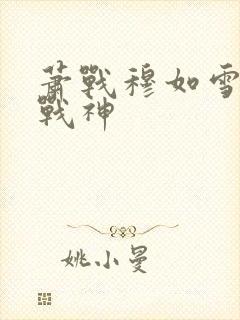 蕭戰穆如雪
戰神
姚小曼